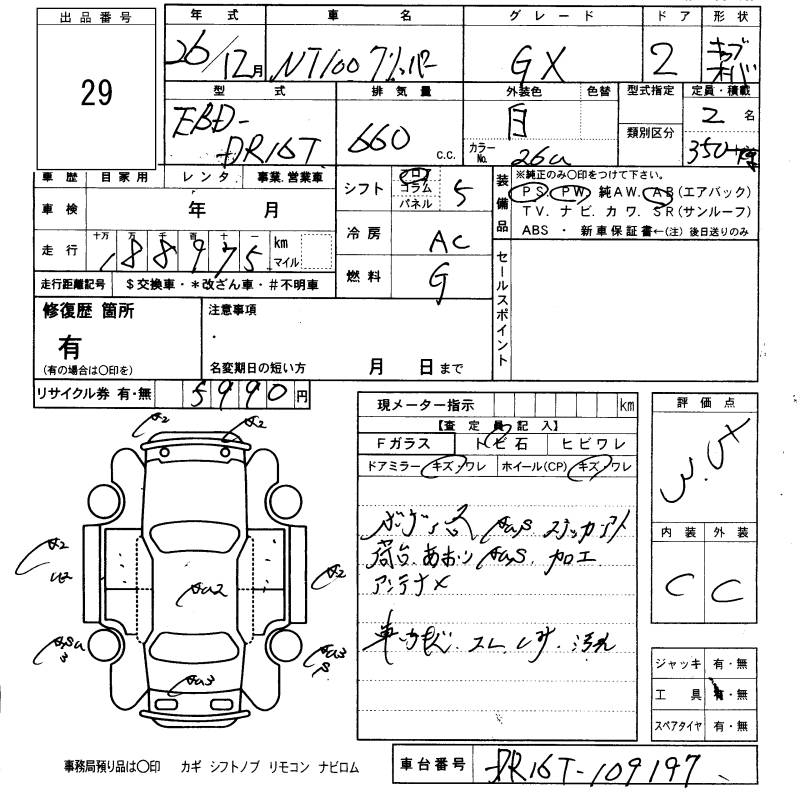 出品番号
29
年式 車名 グレード ドア 形状
26/12月 NT100クリッパー GX 2 キャブオーバ
型式 排気量 外装色 色替 型式指定 定員・積載
EBD-DR16T 660 c.c. 白 類別区分 2名
カラーNo. 26U 350
車歴 自家用 レンタ 事業.営業車
車検 年 月
走行 十万 万 千 百 十 一
188975 km マイル
走行距離記号 $交換車・*改ざん車・#不明車
シフト フロ コラム パネル 5
冷房 AC
燃料 G
装備品
※純正のみ〇印をつけて下さい。
PS. PW. 純AW. AB(エアバック)
TV. ナビ. カワ. SR(サンルーフ)
ABS ・ 新車保証書←(注) 後日送りのみ
セールスポイント
修復歴 箇所
有
(有の場合は〇印を)
注意事項
名変期日の短い方 月 日まで
リサイクル券 有・無 5990円
現メーター指示 km
【査定員記入】
Fガラス トビ石 ヒビワレ
ドアミラー キズ・ワレ ホイール(CP) キズ・ワレ
荷台.あおり 加工
アンテナ×
コゲ.汚れ
評価点
内装 外装
C C
ジャッキ 有・無
工具 有・無
スペアタイヤ 有・無
A2
A2
A2
U2
AU2
A2
AU3
事務局預り品は〇印 カギ シフトノブ リモコン ナビロム
車台番号 DR16T-109197